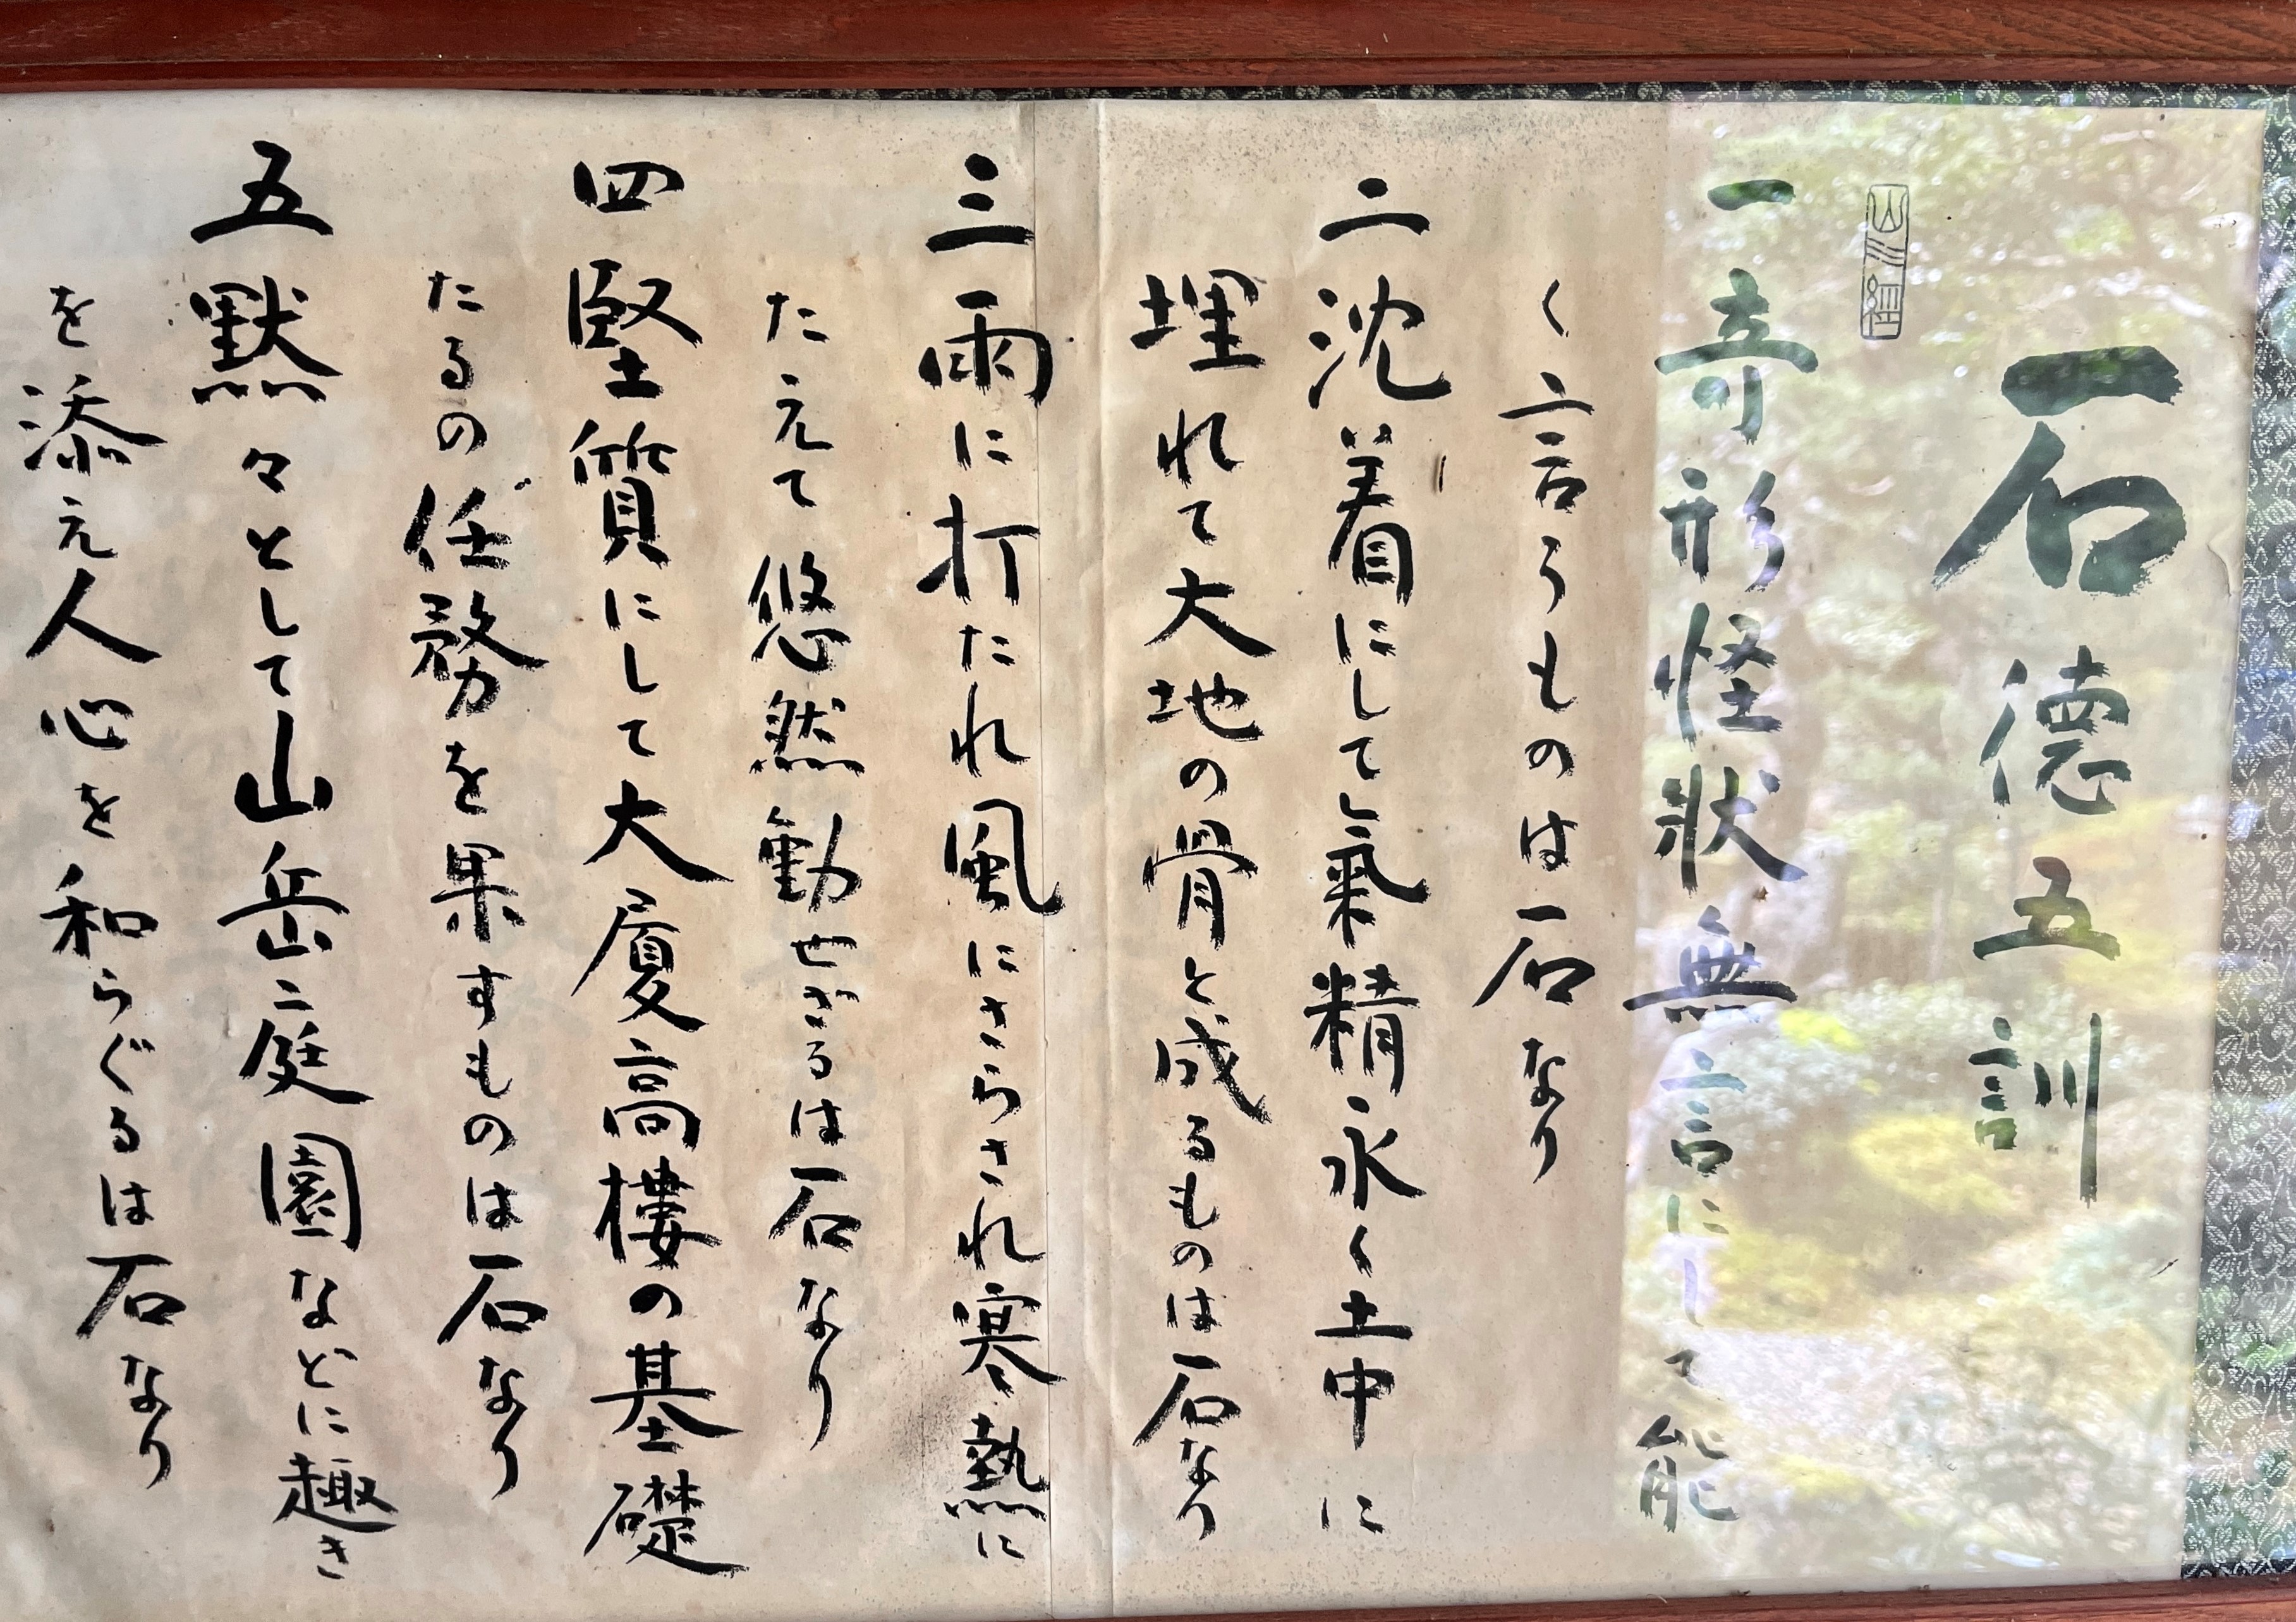 石徳五訓
山川經
一奇形怪狀無言にして能
く言うものは石なり
二沈着にして氣精永く土中に
埋れて大地の骨と成るものは石なり
三雨に打たれ風にさらされ寒熱に
たえて悠然動せざるは石なり
四堅質にして大厦高樓の基礎
たるの任務を果すものは石なり
五默々として山岳庭園などに趣き
を添え人心を和らぐるは石なり